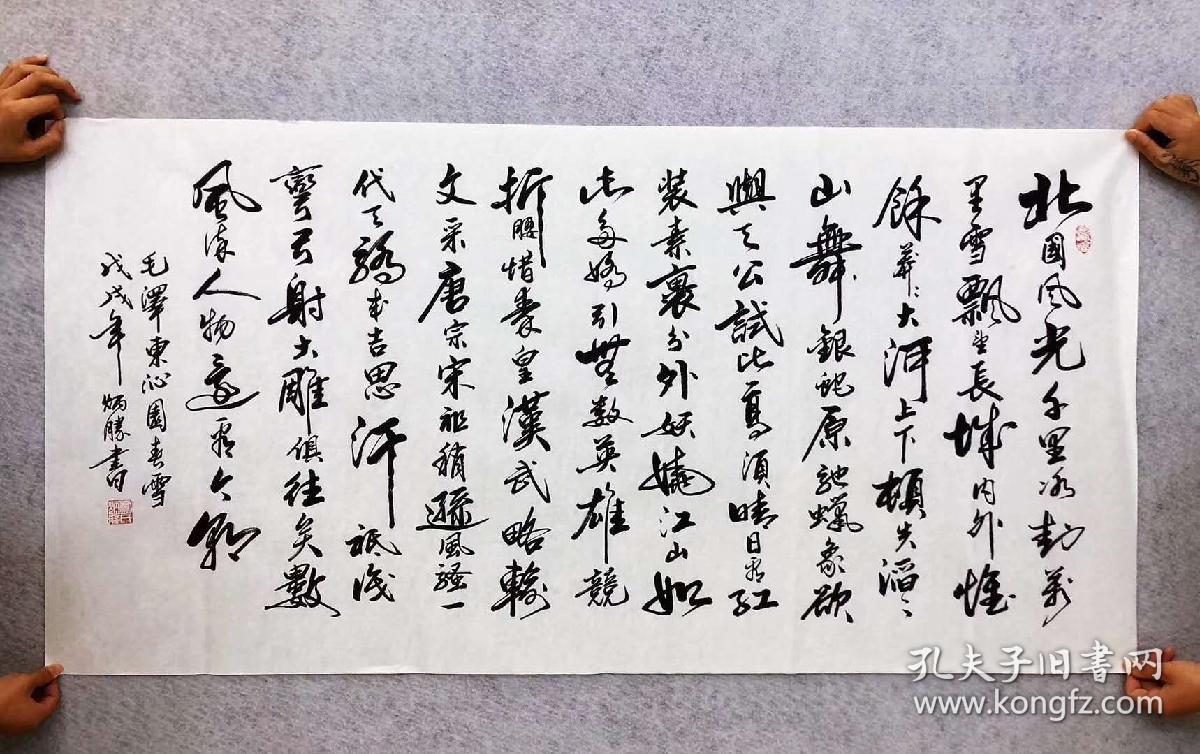 北國風光千里冰封萬
里雪飄望長城內外惟
餘莽〻大河上下頓失滔〻
山舞銀蛇原馳蠟象欲
與天公試比高須晴日看紅
裝素裹分外妖嬈江山如
此多嬌引無數英雄競
折腰惜秦皇漢武略輸
文采唐宗宋祖稍遜風騷一
代天驕成吉思汗祇識
彎弓射大雕俱往矣數
風流人物還看今朝
毛澤東沁園春雪
戊戌年炳勝書
孔夫子旧書网
www.kongfz.com